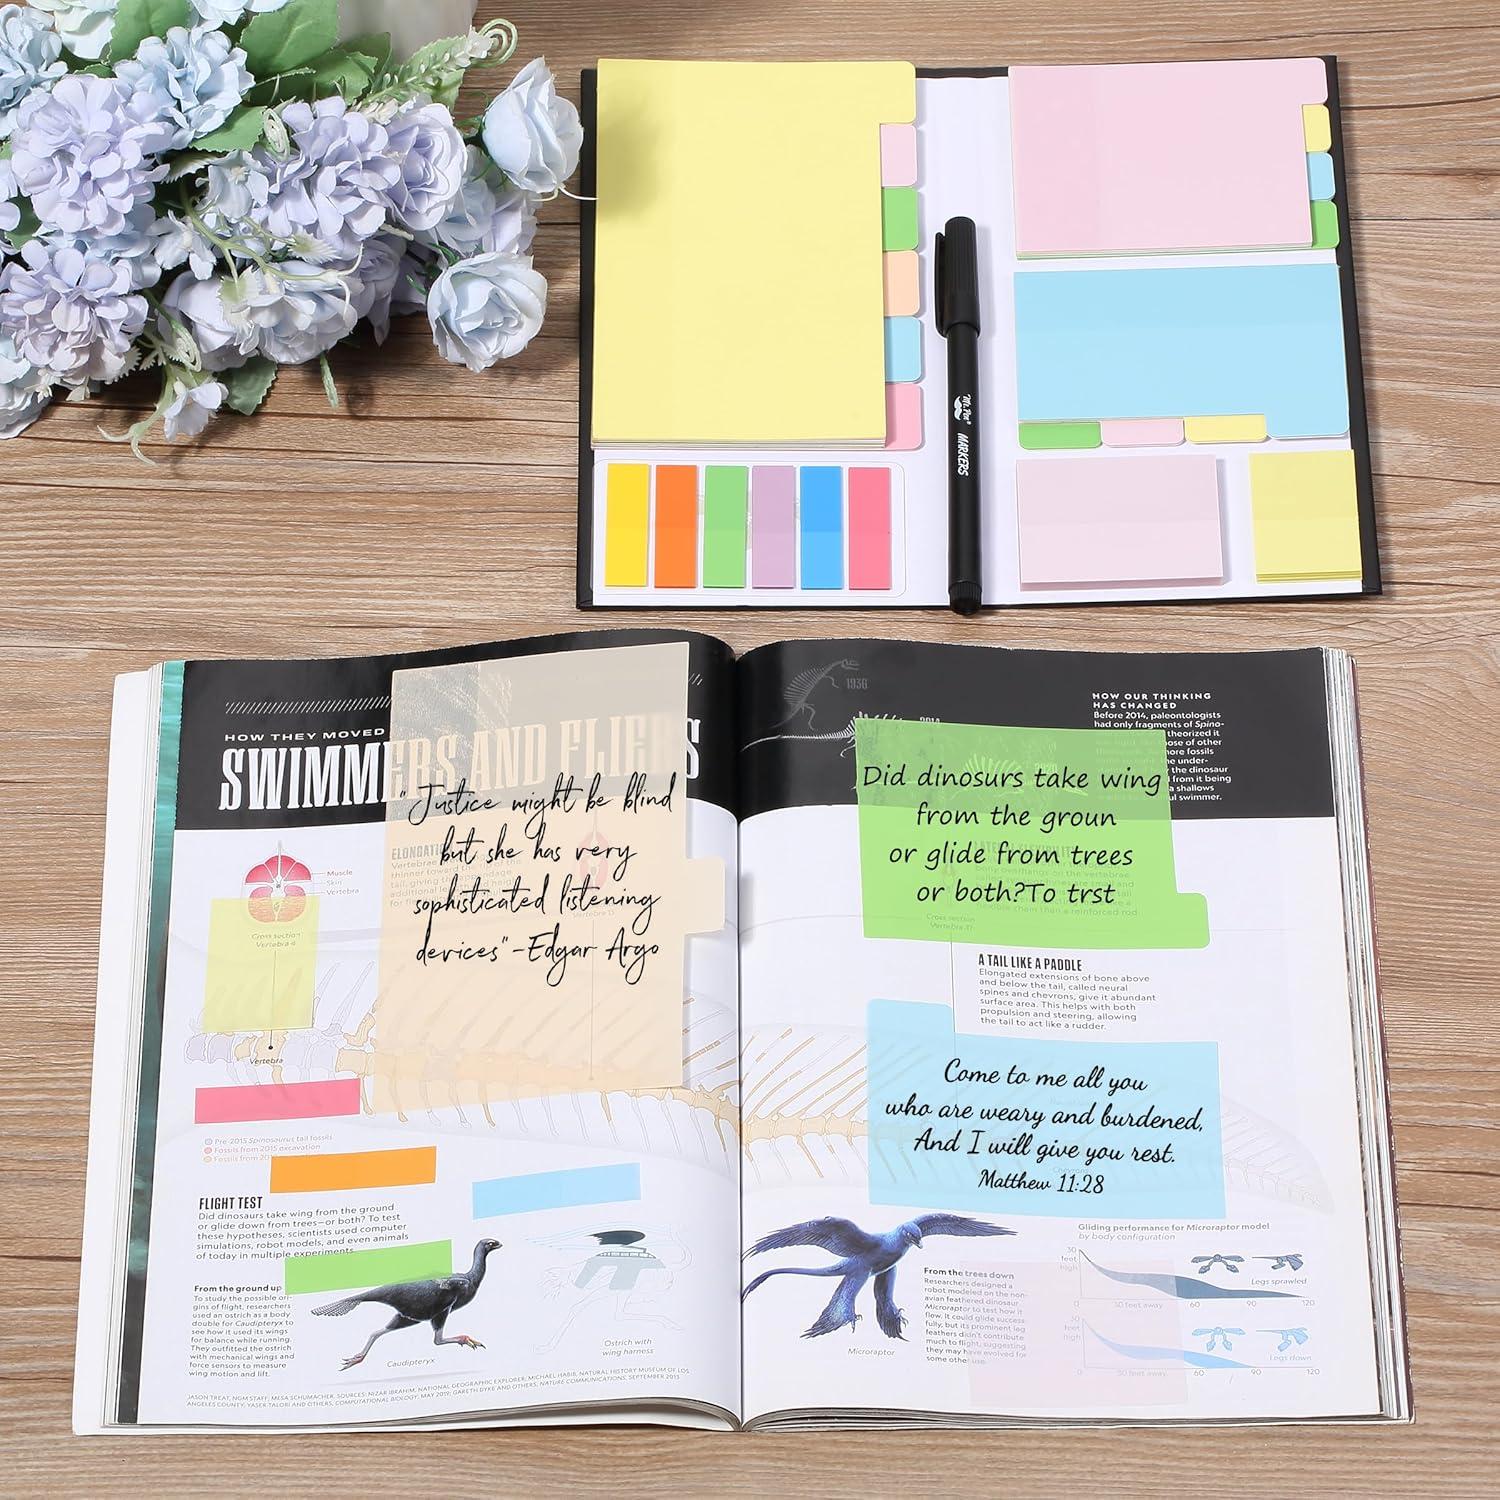 Mr. Pen® MARKERS
HOW THEY MOVED
SWIMMERS AND FLIERS
"Justice might be blind
but she has very
sophisticated listening
devices"-Edgar Argo
ELONGATI
Muscle
Skin
Vertebra
Cross section
Vertebra 4
Vertebra
Pre-2015 Spinosaurus tail fossils
Fossils from 2015 excavation
Fossils from 201
FLIGHT TEST
Did dinosaurs take wing from the ground
or glide down from trees—or both? To test
these hypotheses, scientists used computer
simulations, robot models, and even animals
of today in multiple experiments.
From the ground up
To study the possible ori-
gins of flight, researchers
used an ostrich as a body
double for Caudipteryx to
see how it used its wings
for balance while running.
They outfitted the ostrich
with mechanical wings and
force sensors to measure
wing motion and lift.
Caudipteryx
Ostrich with
wing harness
JASON TREAT, NGM STAFF; MESA SCHUMACHER. SOURCES: NIZAR IBRAHIM, NATIONAL GEOGRAPHIC EXPLORER; MICHAEL HABIB, NATURAL HISTORY MUSEUM OF LOS
ANGELES COUNTY; YASER TALORI AND OTHERS, COMPUTATIONAL BIOLOGY, MAY 2019; GARETH DYKE AND OTHERS, NATURE COMMUNICATIONS, SEPTEMBER 2013
1936
2014
HOW OUR THINKING
HAS CHANGED
Before 2014, paleontologists
had only fragments of Spino-
theorized it
those of other
more fossils
the under-
the dinosaur
from it being
a shallows
ul swimmer.
Did dinosurs take wing
from the groun
or glide from trees
or both?To trst
Cross section
A TAIL LIKE A PADDLE
Elongated extensions of bone above
and below the tail, called neural
spines and chevrons, give it abundant
surface area. This helps with both
propulsion and steering, allowing
the tail to act like a rudder.
Come to me all you
who are weary and burdened,
And I will give you rest.
Matthew 11:28
Microraptor
From the trees down
Researchers designed a
robot modeled on the non-
avian feathered dinosaur
Microraptor to test how it
flew. It could glide success-
fully, but its prominent leg
feathers didn't contribute
much to flight, suggesting
they may have evolved for
some other use.
Gliding performance for Microraptor model
by body configuration
30
feet
high
Legs sprawled
0 30 feet away 60 90 120
30
feet
high
Legs down
0 30 feet away 60 90 120